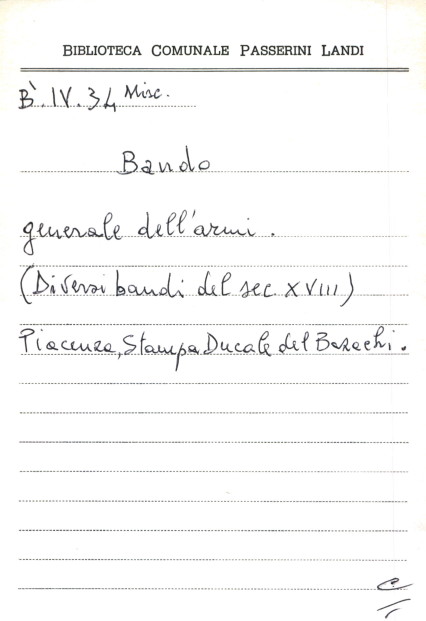 BIBLIOTECA COMUNALE PASSERINI LANDI
B̀.IV.34 Misc.
Bando
generale dell'armi.
(Diversi bandi del sec XVIII)
Piacenza, Stampa Ducale del Bazachi.